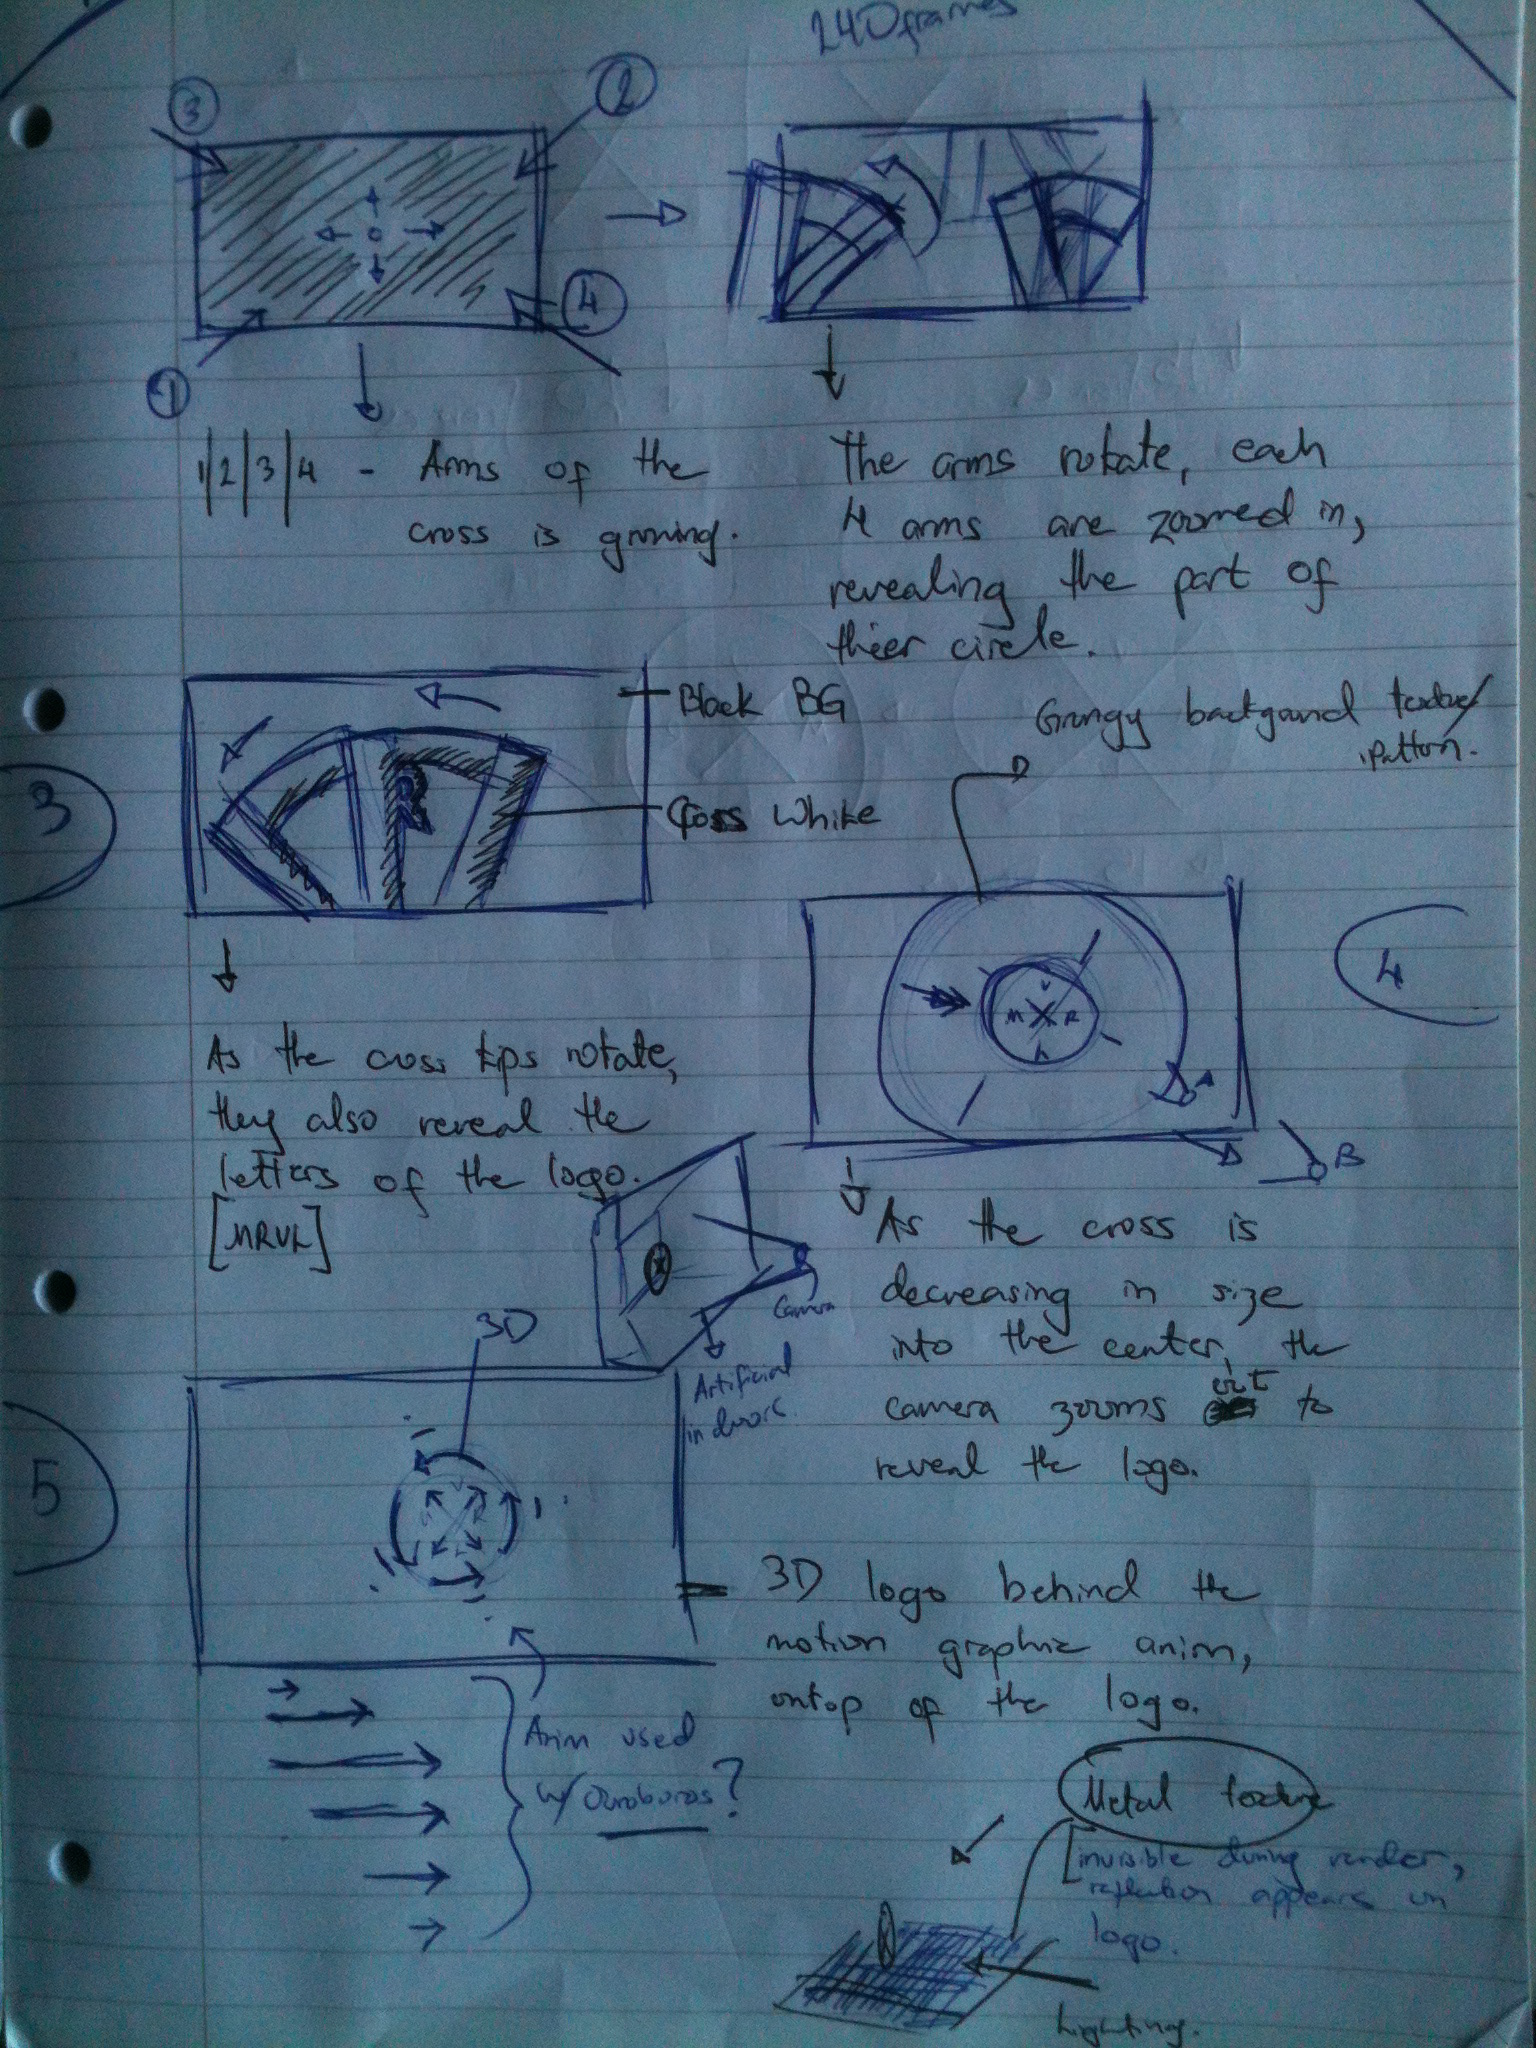 240 frames
3
2
4
1
1/2/3/4 - Arms of the
cross is growing.
The arms rotate, each
4 arms are zoomed in,
revealing the part of
theer circle.
3
Black BG
Cross White
R
Grungy background texture/
pattern.
As the cross tips rotate,
they also reveal the
letters of the logo.
[MRVL]
4
M R
A
B
As the cross is
decreasing in size
into the center, the
camera zooms out to
reveal the logo.
Camera
Artificial
indoors.
5
3D
3D logo behind the
motion graphic anim,
ontop of the logo.
Anim used
w/ Ouroboros?
Metal texture
[invisible during render,
reflection appears on
logo.
Lighting.